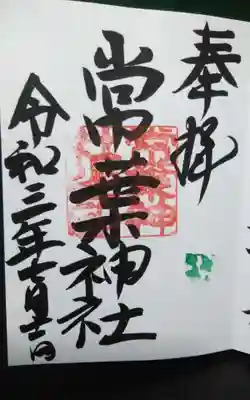 奉拝
常葉神社
令和三年七月十一日